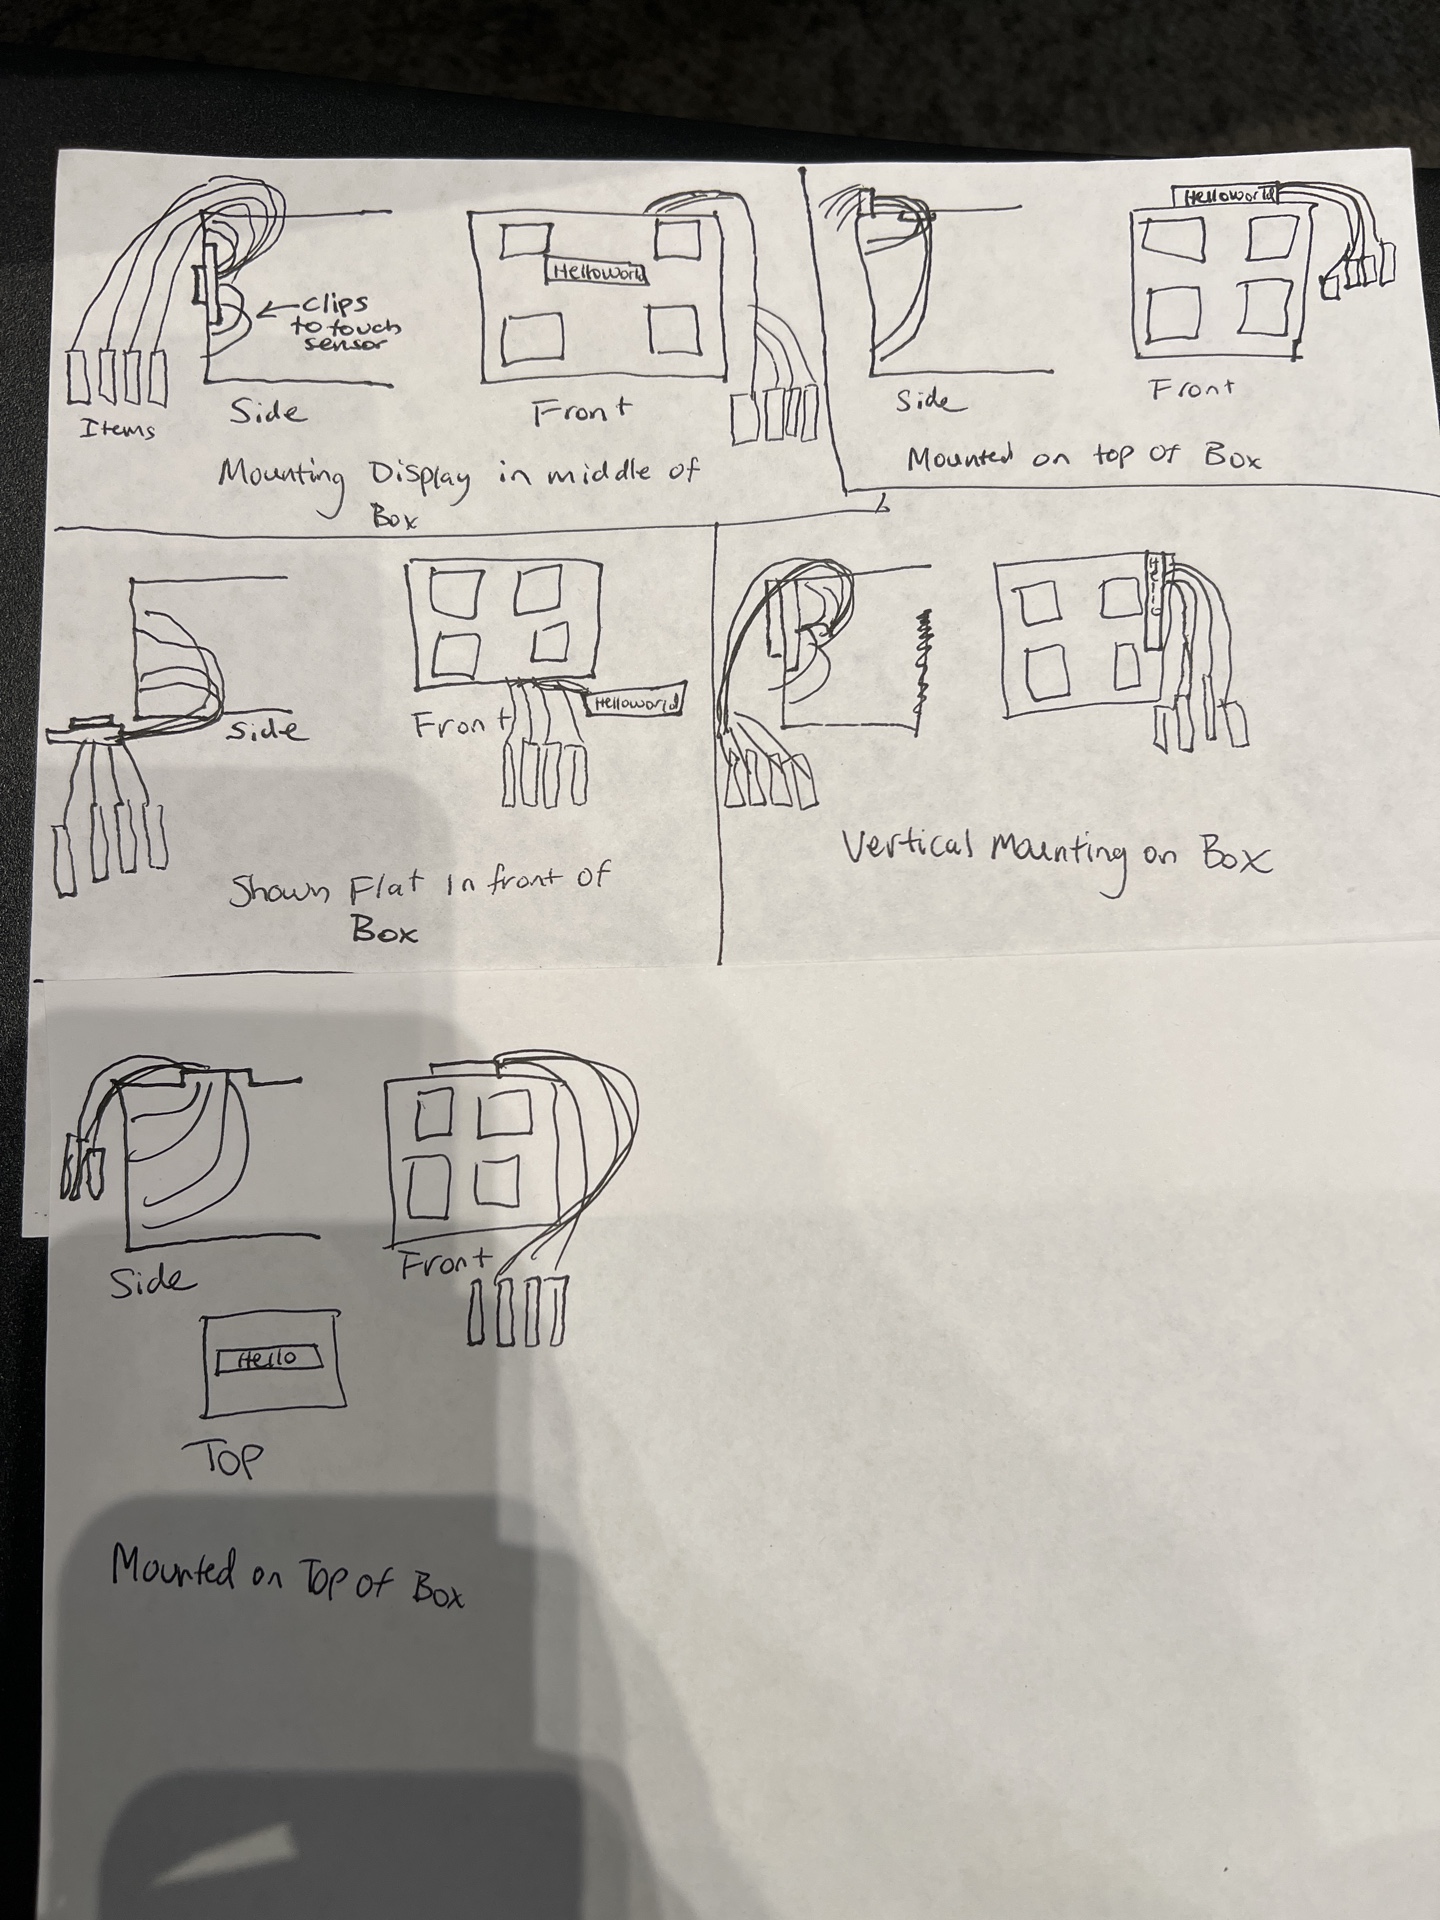 Helloworld
← clips
to touch
sensor
Items
Side
Front
Mounting Display in middle of
Box
Helloworld
Side
Front
Mounted on top of Box
Side
Front
Helloworld
Shown Flat In front of
Box
Hello
Vertical Mounting on Box
Side
Front
Hello
Top
Mounted on Top of Box